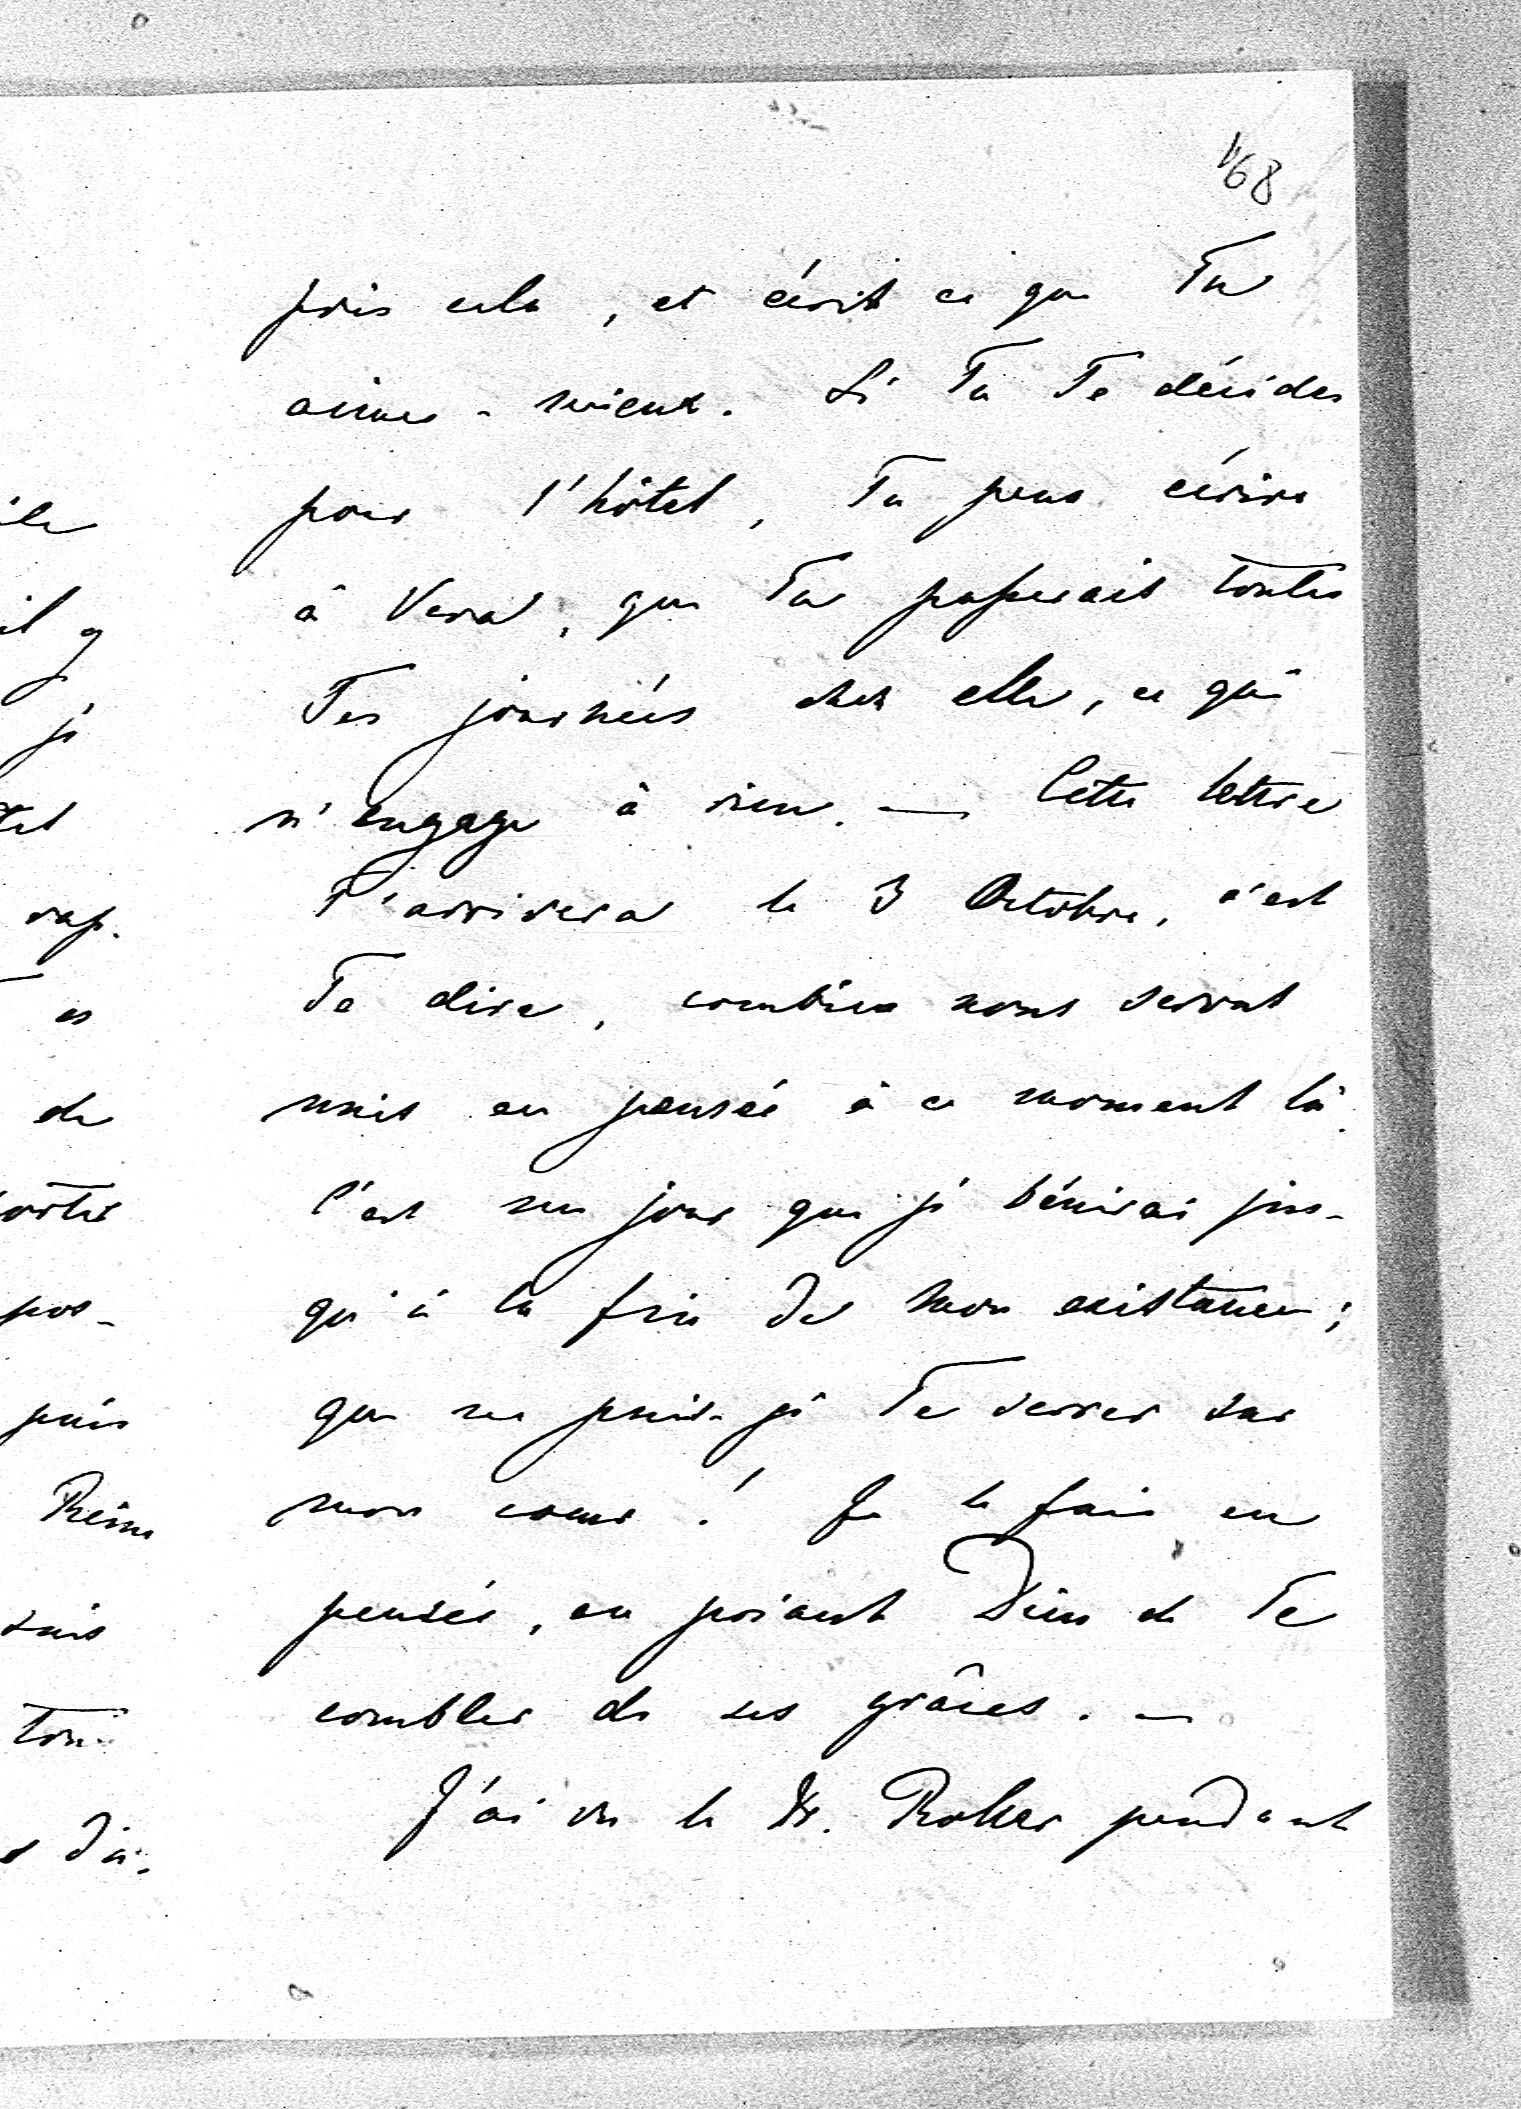 168
pris cela, et écrit ce que Tu
aimes-mieux. Si Tu Te décides
pour l'hôtel, Tu peux écrire
à Vera, que Tu passerais toutes
Tes journées chez elle, ce qui
n'engage à rien. — Cette lettre
T'arrivera le 3 Octobre, c'est
Te dire, combien nous serons
unis en pensée à ce moment là.
C'est un jour que je bénirai jus-
qu'à la fin de mon existance;
que ne puis-je Te serrer sur
mon coeur! Je le fais en
pensée, en priant Dieu de Te
combler de ses grâces. —
J'ai vu le Dr. pendant
il y
je
rap.
es
de
pos-
puis
Reine
suis
ton